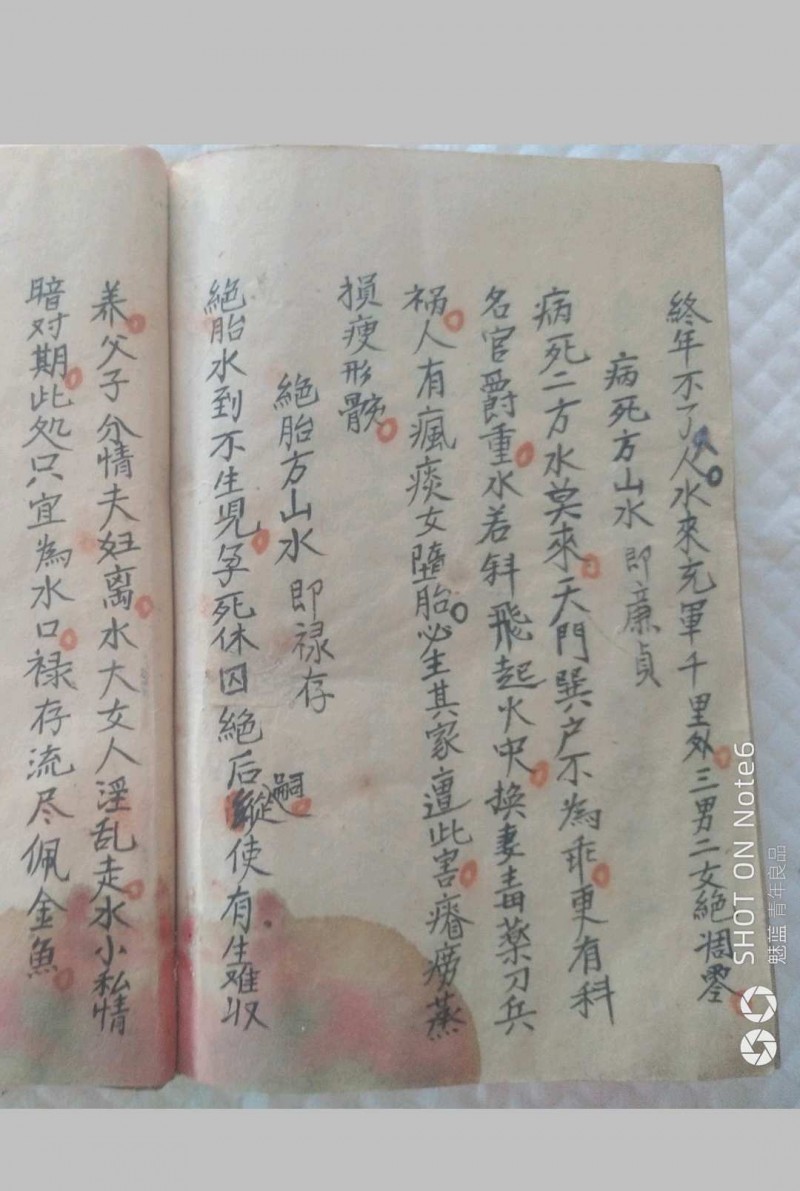 終年不了人水來充軍千里外三男二女絕凋零
病死方山水 即廉貞
病死二方水莫來天門巽户不為乖更有科
名官爵重水若斜飛起火灾換妻毒薬刀兵
祸人有瘋痰女墮胎必主其家遭此害瘠痨蒸
損瘦形骸
絕胎方山水 即禄存
絕胎水到不生児孕死休囚絕后嗣縱使有生难収
养父子分情夫妇离水大女人淫乱走水小私情
暗对期此处只宜為水口禄存流尽佩金魚
SHOT ON Note6
魅蓝 青年良品